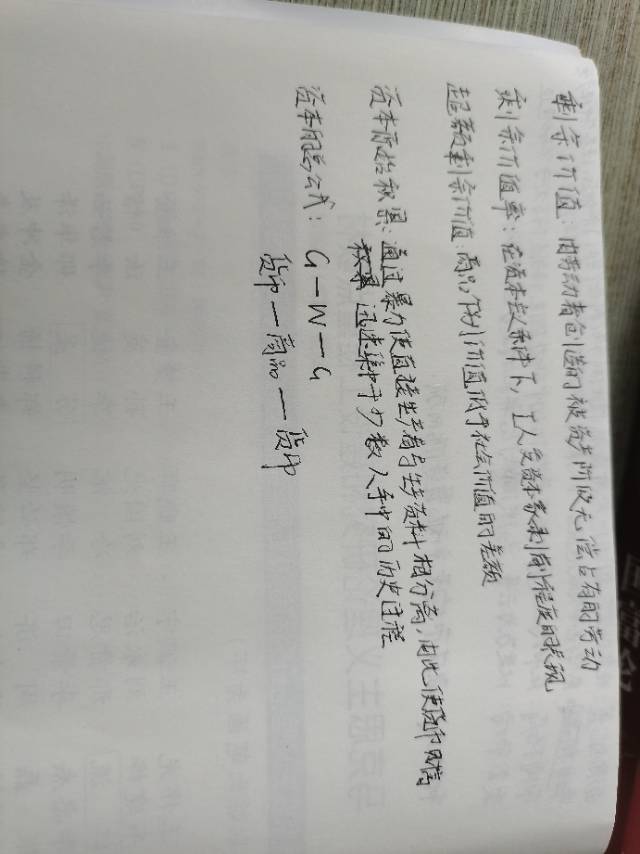 剩余价值：由劳动者创造的被资产阶级无偿占有的劳动
剩余价值率：在资本主义条件下，工人受资本家剥削程度的表现
超额剩余价值：商品个别价值低于社会价值的差额
资本原始积累：通过暴力使直接生产者与生产资料相分离，由此使货币财富
积累 迅速集中于少数人手中的历史过程
资本的总公式：G—W—G
货币—商品—货币